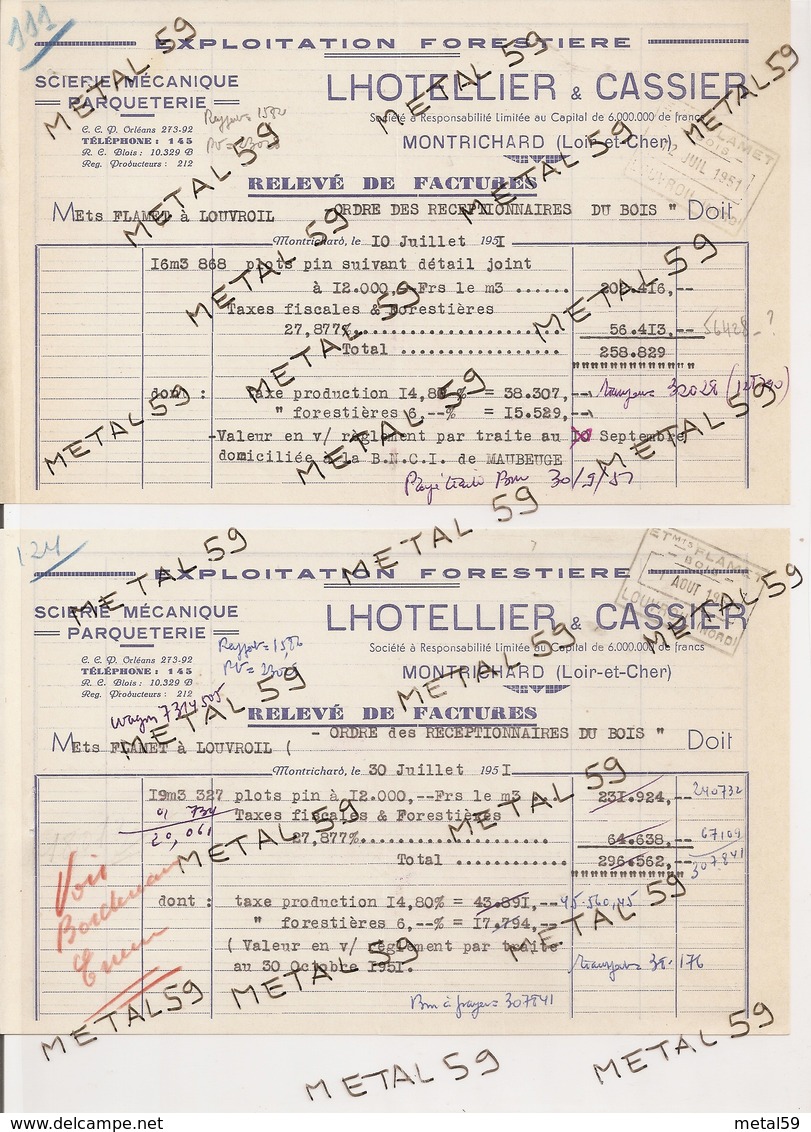 111
EXPLOITATION FORESTIERE
SCIERIE MÉCANIQUE
PARQUETERIE
LHOTELLIER & CASSIER
C. C. P. Orléans 273-92
TÉLÉPHONE : 145
R. C. Blois : 10.329 B
Reg. Producteurs : 212
Société à Responsabilité Limitée au Capital de 6.000.000 de francs
MONTRICHARD (Loir-et-Cher)
JUIL 1951
RELEVÉ DE FACTURES
Mets FLAMET à LOUVROIL -ORDRE DES RECEPTIONNAIRES DU BOIS " Doit
Montrichard, le 10 Juillet 1951
16m3 868 plots pin suivant détail joint
à 12.000,-Frs le m3 ...... 202.416,--
Taxes fiscales & Forestières
27,877%....................... 56.413,-- 56428_?
Total ................. 258.829
dont : taxe production 14,80 % = 38.307,--
" forestières 6,--% = 15.529,--
-Valeur en v/ règlement par traite au 10 Septembre
domiciliée à la B.N.C.I. de MAUBEUGE
30/9/51
124
EXPLOITATION FORESTIERE
SCIERIE MÉCANIQUE
PARQUETERIE
LHOTELLIER & CASSIER
ETts FLAMET
BOIS
1 AOUT 19
LOUVROIL (NORD)
C. C. P. Orléans 273-92
TÉLÉPHONE : 145
R. C. Blois : 10.329 B
Reg. Producteurs : 212
Société à Responsabilité Limitée au Capital de 6.000.000 de francs
MONTRICHARD (Loir-et-Cher)
wagon 7314505
RELEVÉ DE FACTURES
Mets FLAMET à LOUVROIL ( - ORDRE des RECEPTIONNAIRES DU BOIS " Doit
Montrichard, le 30 Juillet 1951
19m3 327 plots pin à 12.000,--Frs le m3 . 231.924,-- 240732
734 Taxes fiscales & Forestières
20,061 27,877%....................... 64.638,-- 67109
Total ............ 296.562,-- 307841
Voir
dont : taxe production 14,80% = 43.891,-- 45.560,45
" forestières 6,--% = 17,794,--
( Valeur en v/ règlement par traite
au 30 Octobre 1951.
307841
METAL 59
delcampe.net
metal59